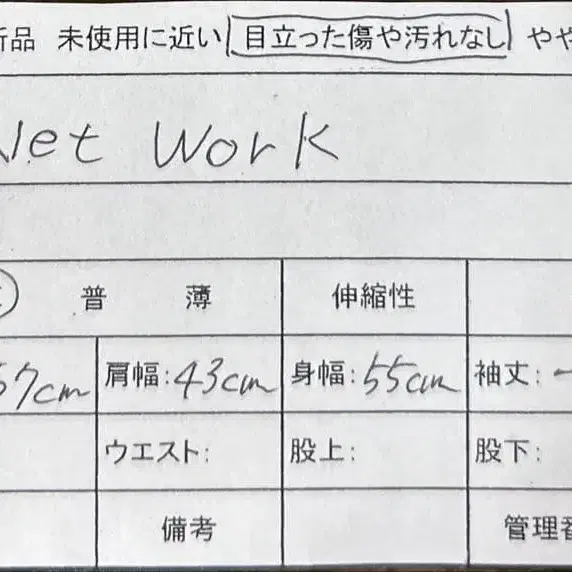 新品 未使用に近い 目立った傷や汚れなし やや
Net Work
普 薄 伸縮性
57cm 肩幅:43cm 身幅:55cm 袖丈:
ウエスト: 股上: 股下:
備考 管理番